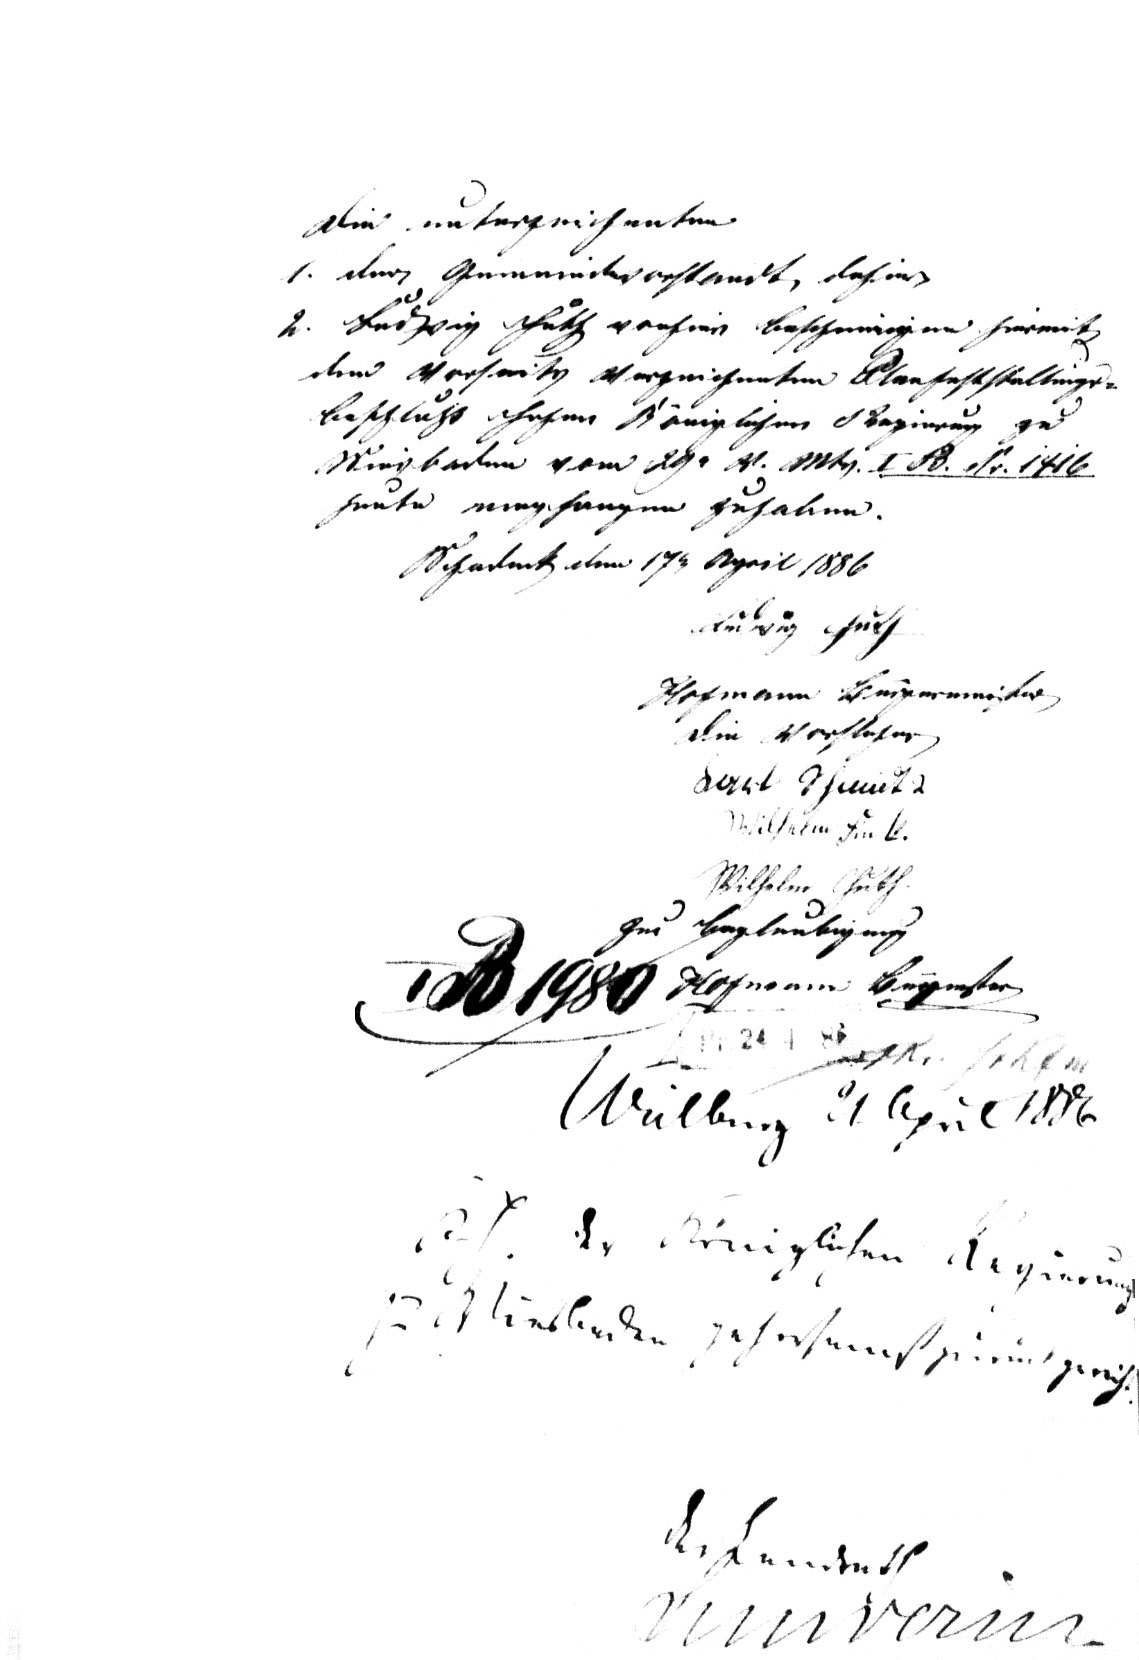 Die unterzeichneten
1. der Gemeindevorstandt, dahier
2. Ludwig Huth von hier bescheinigen hiermit
den Vorseits verzeichneten Planfeststellungs-
beschluß hoher Königlicher Regierung zu
Wiesbaden vom 29. v. Mts. I B. Nr. 1416
heute empfangen zuhaben.
Schadeck den 17ten April 1886
Ludwig Huth
Hofmann Bürgermeister
Die Vorsteher
Karl Schmidt
Wilhelm Fink.
Wilhelm Huth.
Zur Beglaubigung
I B 1980 Hofmann Bürgermster
Pr. 24 4 86
Weilburg 21 April 1886
der Königlichen Regierung
zu Wiesbaden gehorsamst zurückgereicht.
Der Landrath